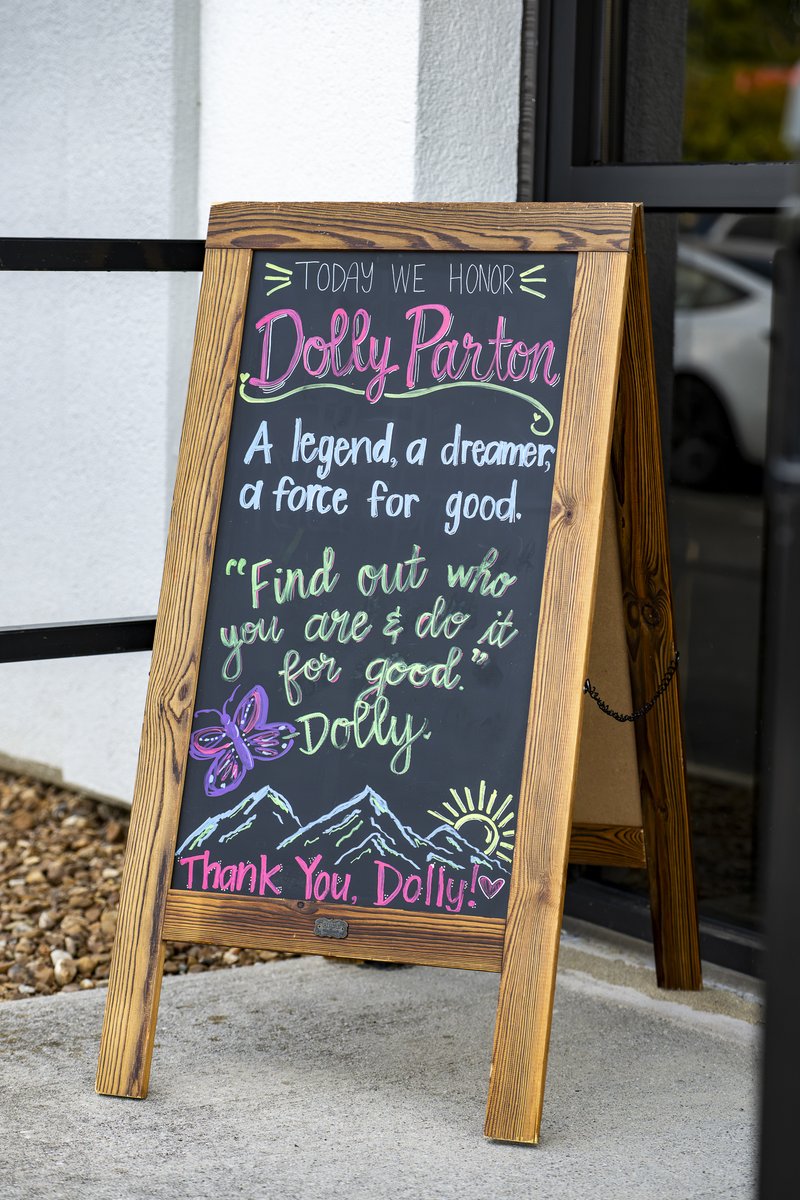 TODAY WE HONOR
Dolly Parton
A legend, a dreamer,
a force for good.
"Find out who
you are & do it
for good."
Dolly.
Thank You, Dolly!